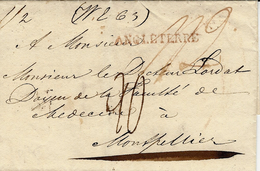 1/2 (N. 263)
A Monsieur
ANGLETERRE
Monsieur le Docteur Lordat
Doyen de la Faculté de
Medecine à
Montpellier